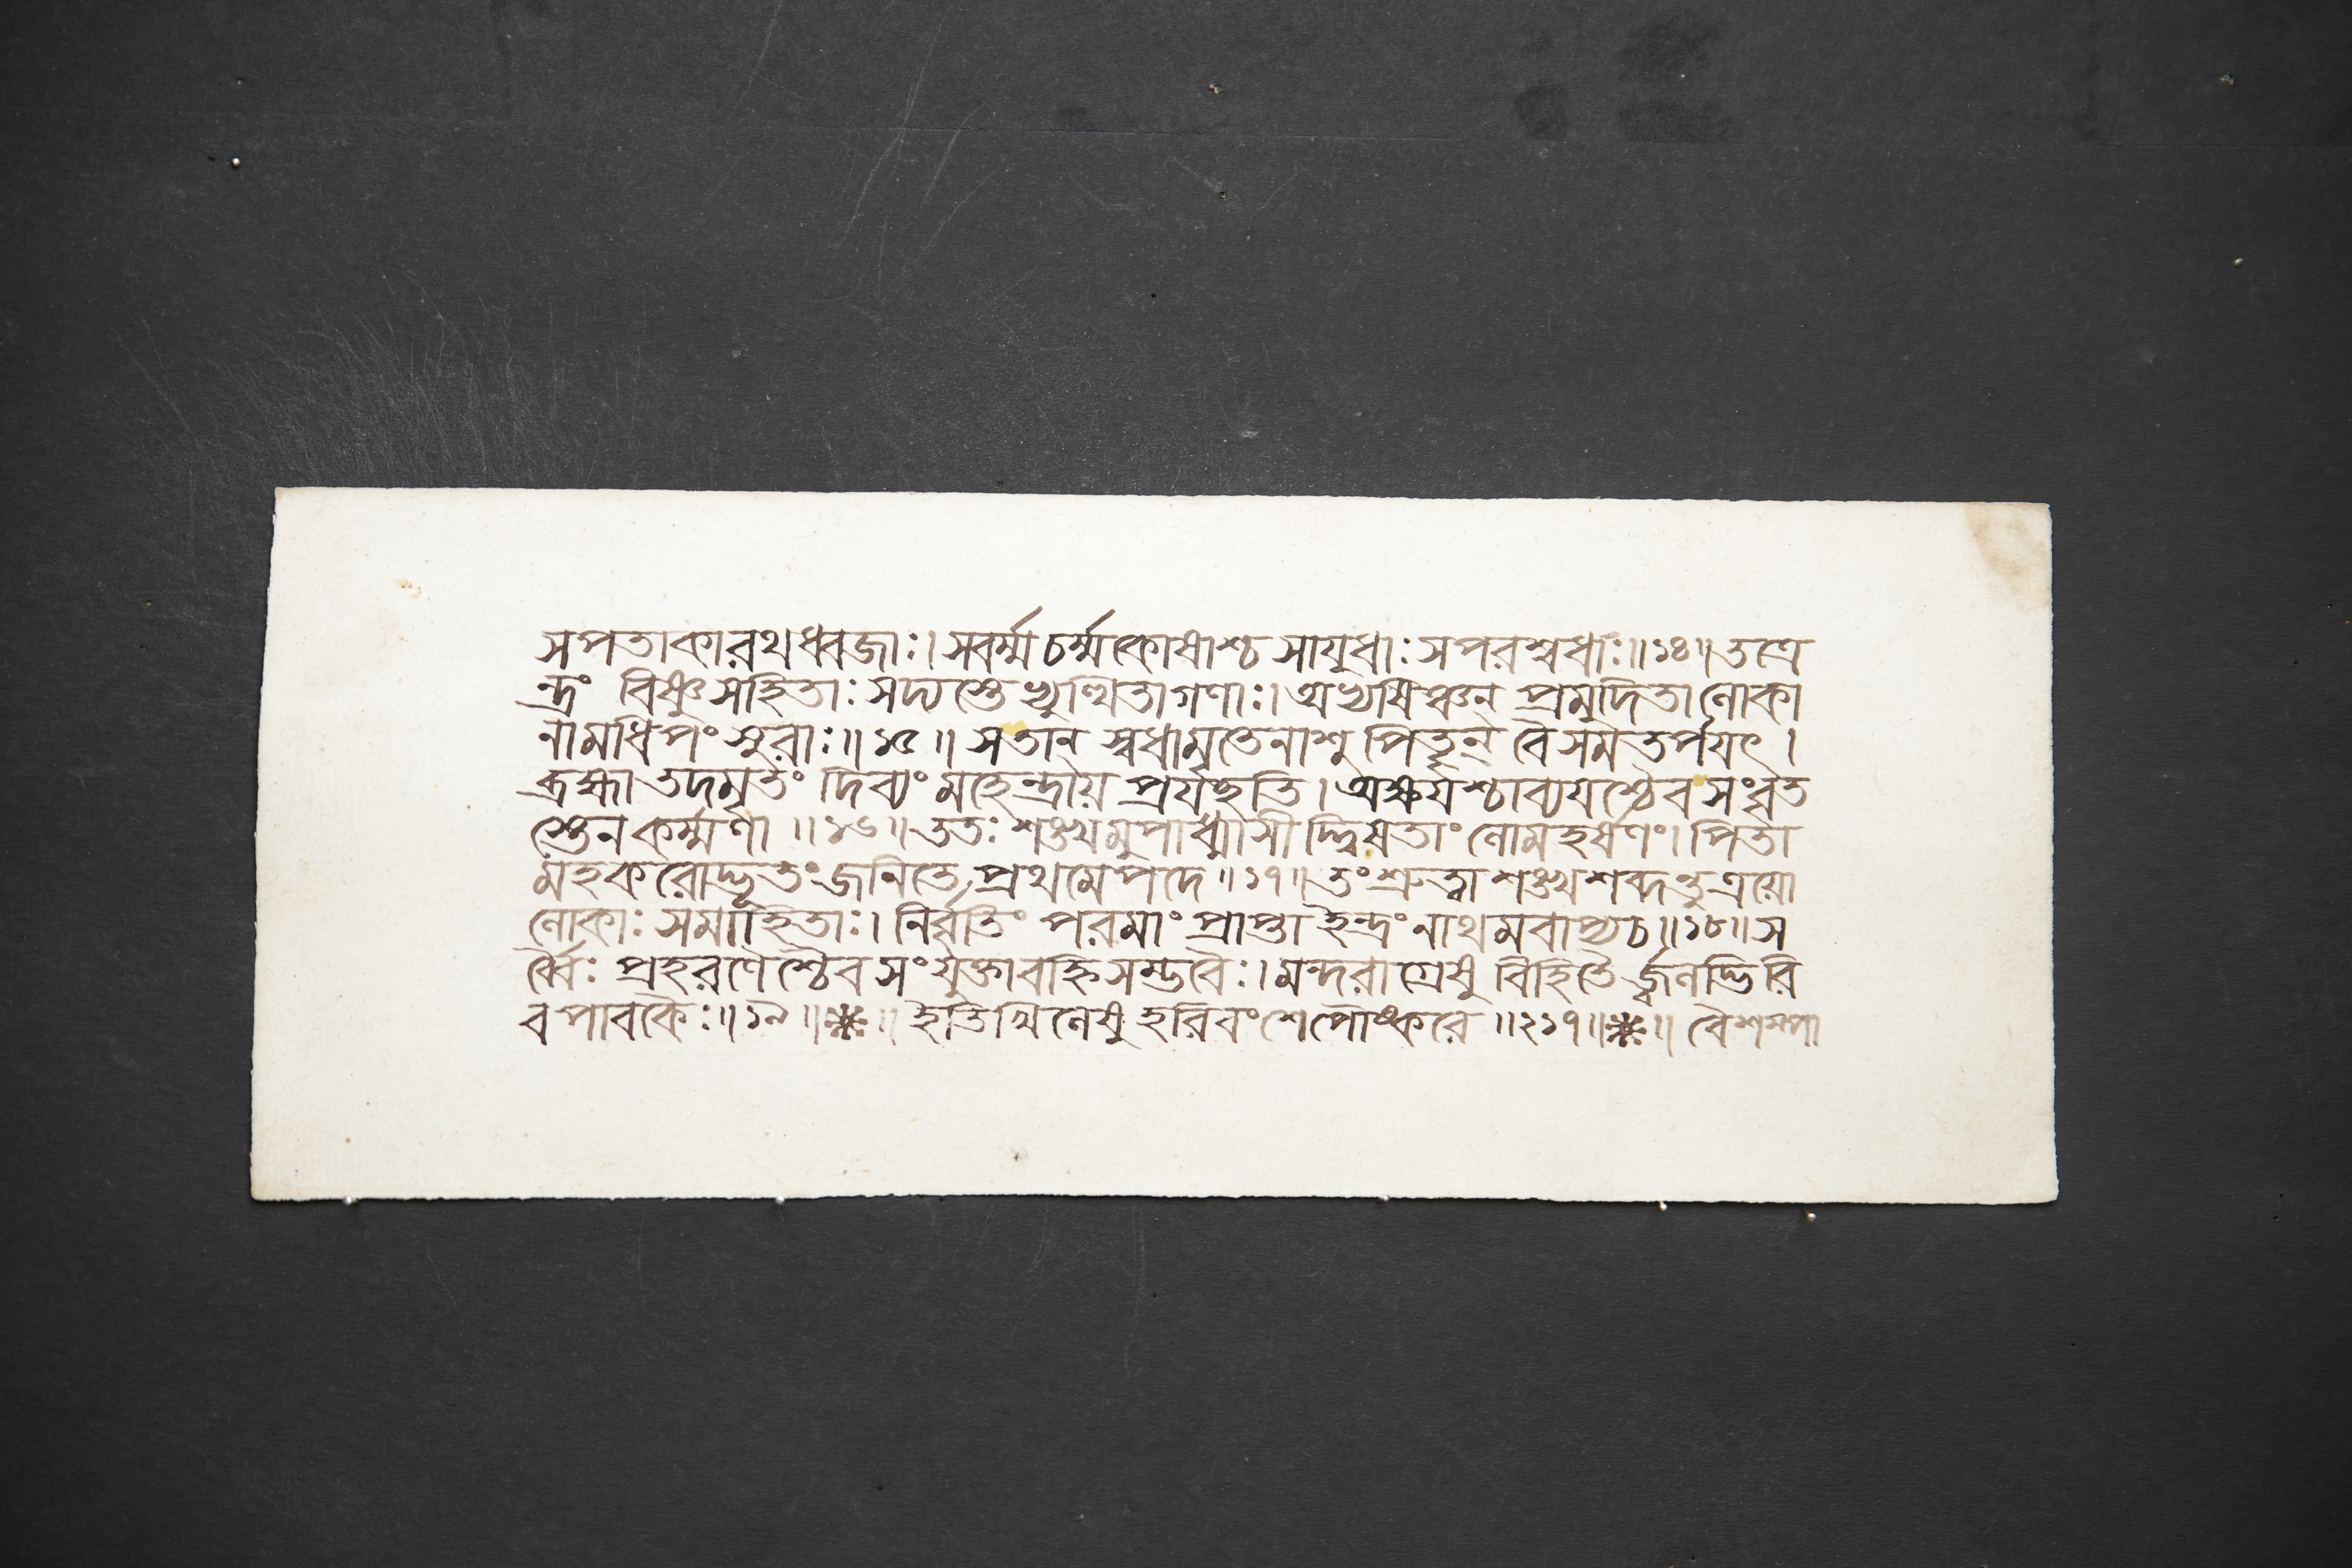 সপতাকারথধ্বজাঃ। সবর্ম্মচর্ম্মকোষাশ্চ সাযুধাঃ সপরশ্বধাঃ॥১৪॥ তত্রে
ন্দ্রং বিষ্ণুসহিতাঃ সদ্যস্তে ঋষিতাগণাঃ। অভ্যষিঞ্চন্ প্রমুদিতা লোকা
নামধিপং সুরাঃ॥১৫॥ সতান্ স্বধামৃতেনাশু পিতৄন্ বৈ সমতর্পযৎ।
ব্রহ্মা তদমৃতং দিব্যং মহেন্দ্রায় প্রযচ্ছতি। অক্ষযশ্চাব্যযশ্চৈব সংবৃত
স্তেন কর্ম্মণা॥১৬॥ ততঃ শঙ্খমুপাধ্মাসীদ্দ্বিষতাং লোমহর্ষণং। পিতা
মহকরোদ্ভূতং জনিতে প্রথমে পদে॥১৭॥ তং শ্রুত্বা শঙ্খশব্দন্তু ত্রয়ো
লোকাঃ সমাহিতাঃ। নির্বৃতিং পরমাং প্রাপ্তা ইন্দ্রং নাথমবাপ্যচ॥১৮॥ স
র্ব্বৈঃ প্রহরণৈশ্চৈব সংযুক্তা বহ্নিসম্ভবৈঃ। মন্দরাগ্রেষু বিহিতৈর্জ্বলদ্ভিরি
ব পাবকৈঃ॥১৯॥ ইতি খিলেষু হরিবংশে পৌষ্করে॥২১৭॥ বৈশম্পা